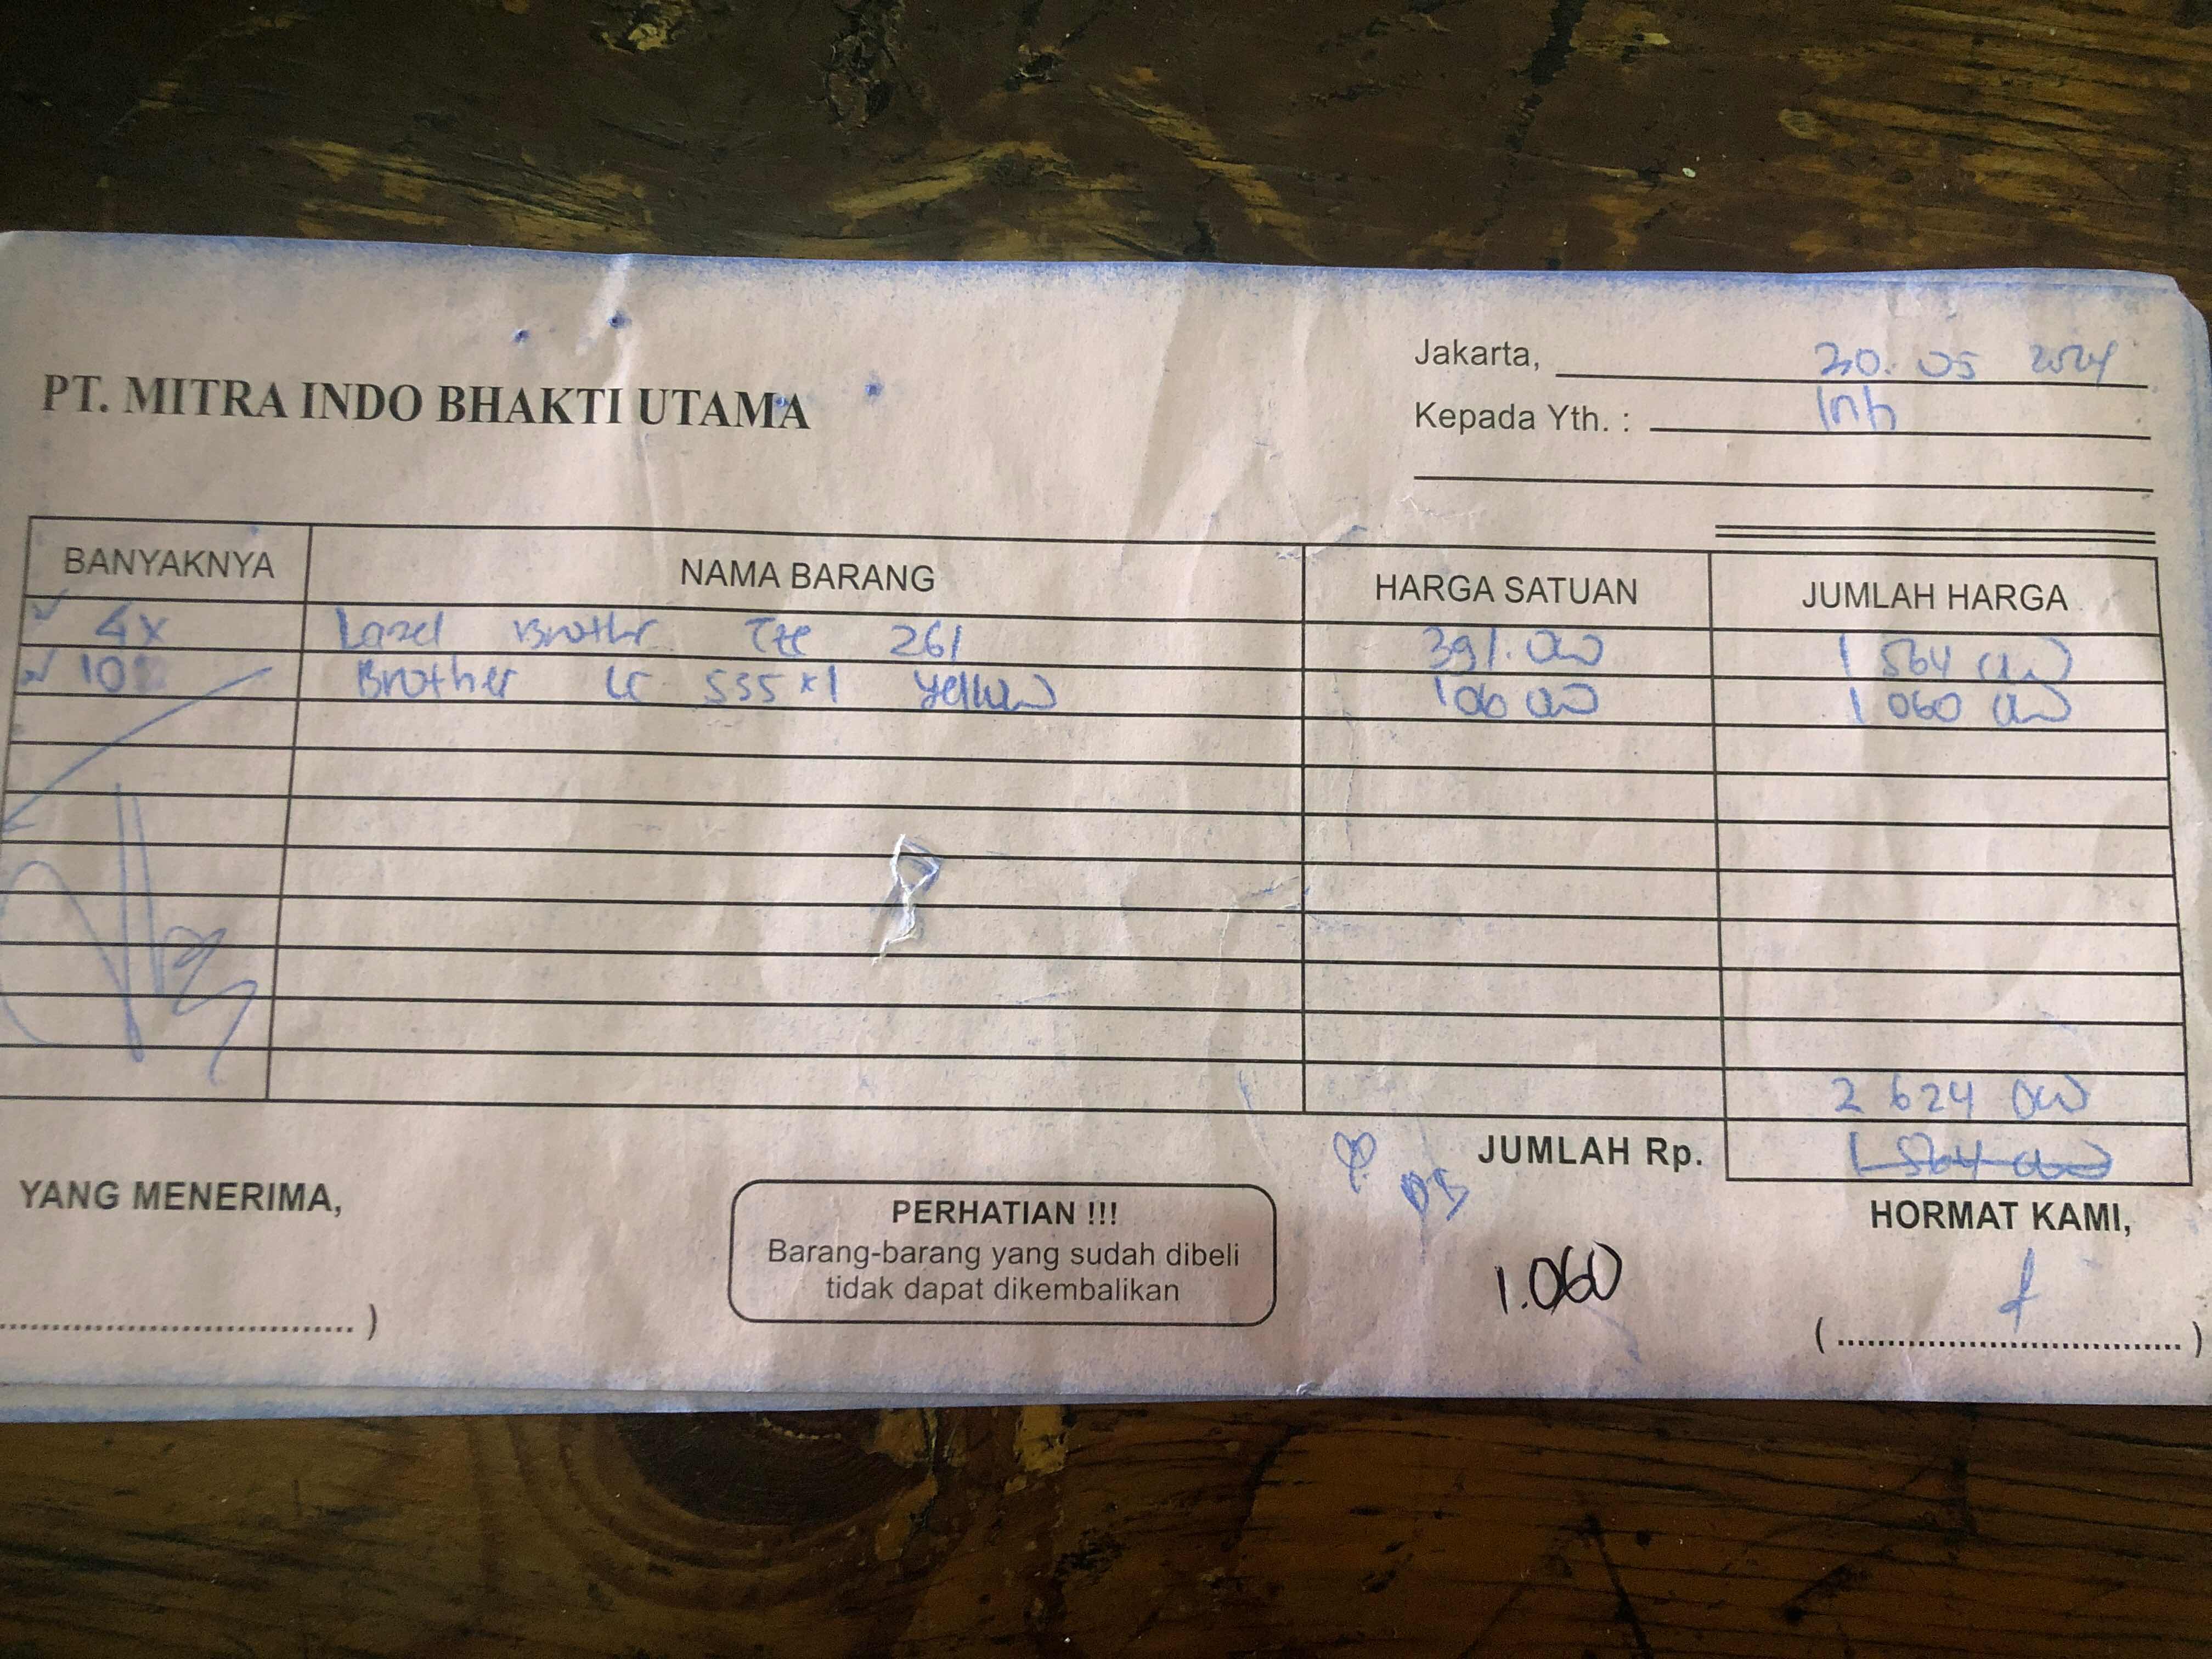 PT. MITRA INDO BHAKTI UTAMA
Jakarta, 20. 05 2024
Kepada Yth. : Inh
BANYAKNYA NAMA BARANG HARGA SATUAN JUMLAH HARGA
4x Label Brother Tze 261 391.000 1 564 000
10 Brother LC 535 x1 Yellow 106 000 1 060 000
2 624 000
JUMLAH Rp. 1 564 000
YANG MENERIMA,
PERHATIAN !!!
Barang-barang yang sudah dibeli
tidak dapat dikembalikan
1.060
HORMAT KAMI,